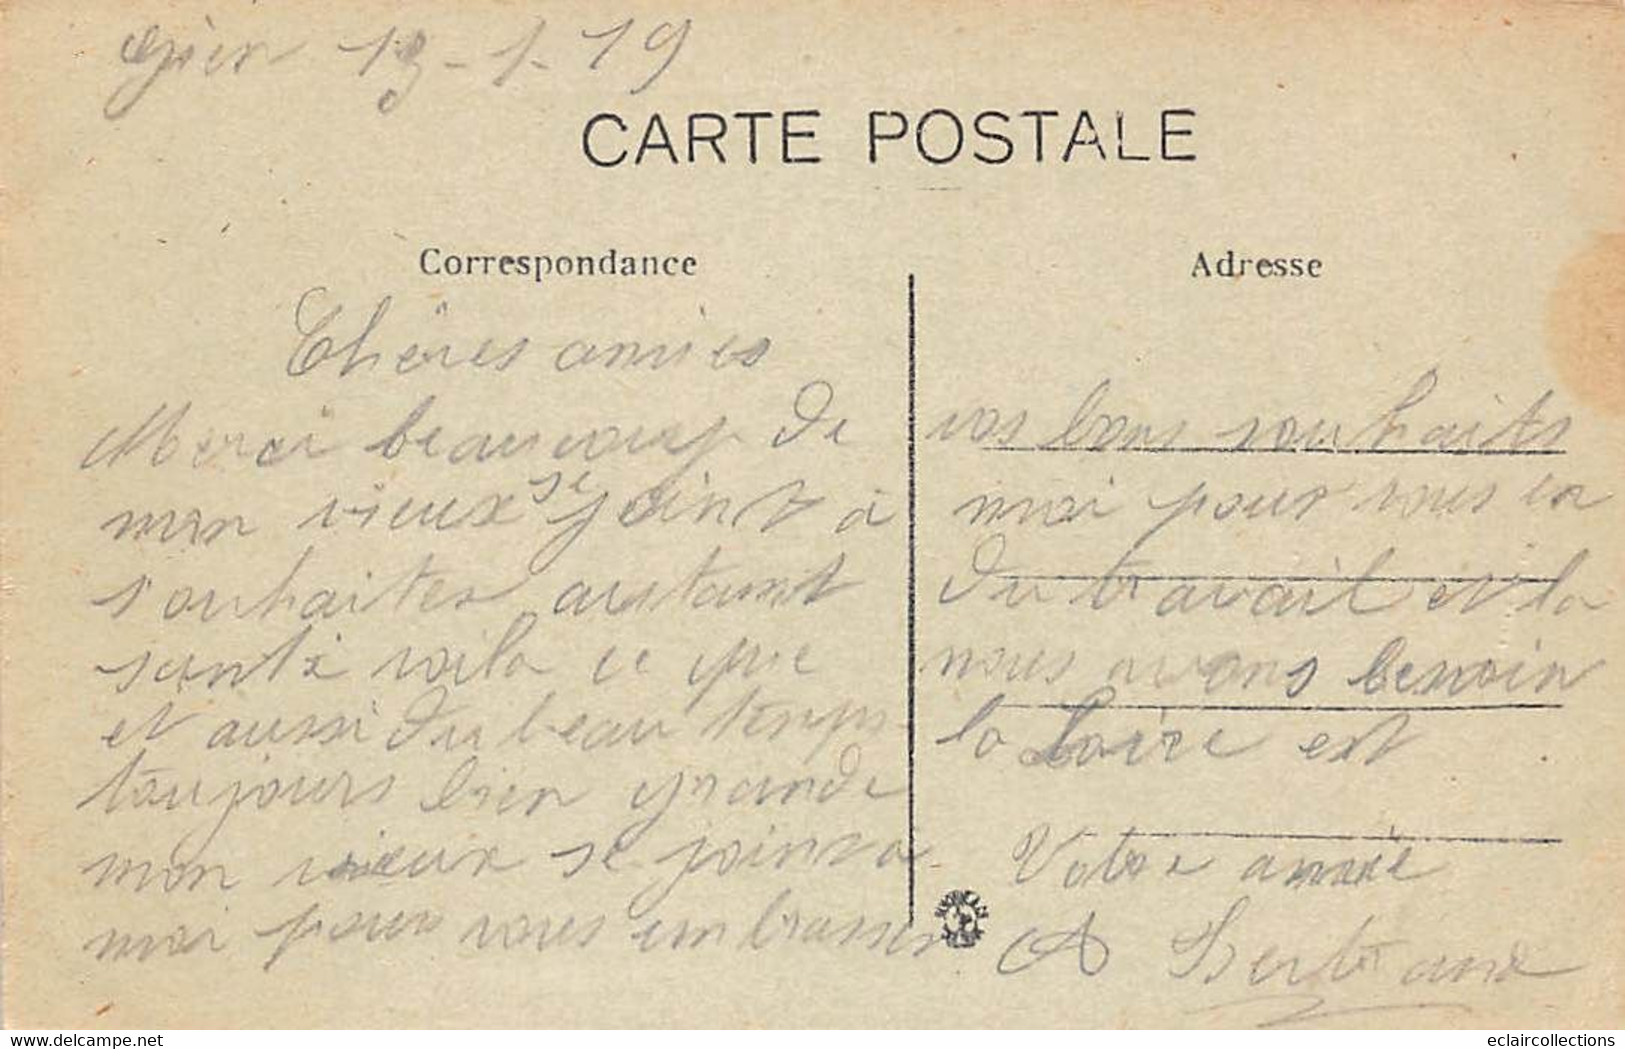 Gien 13-1-19
CARTE POSTALE
Correspondance
Adresse
Chères amies
Merci beaucoup de vos bons souhaits
mon vieux se joint à moi pour vous en
souhaiter autant du travail et la
santé voila ce que nous avons besoin
et aussi du beau temps la Loire est
toujours bien grande
mon vieux se joint a
moi pour vous embrasser
Votre amie
A Bertrand
www.delcampe.net
eclaircollections